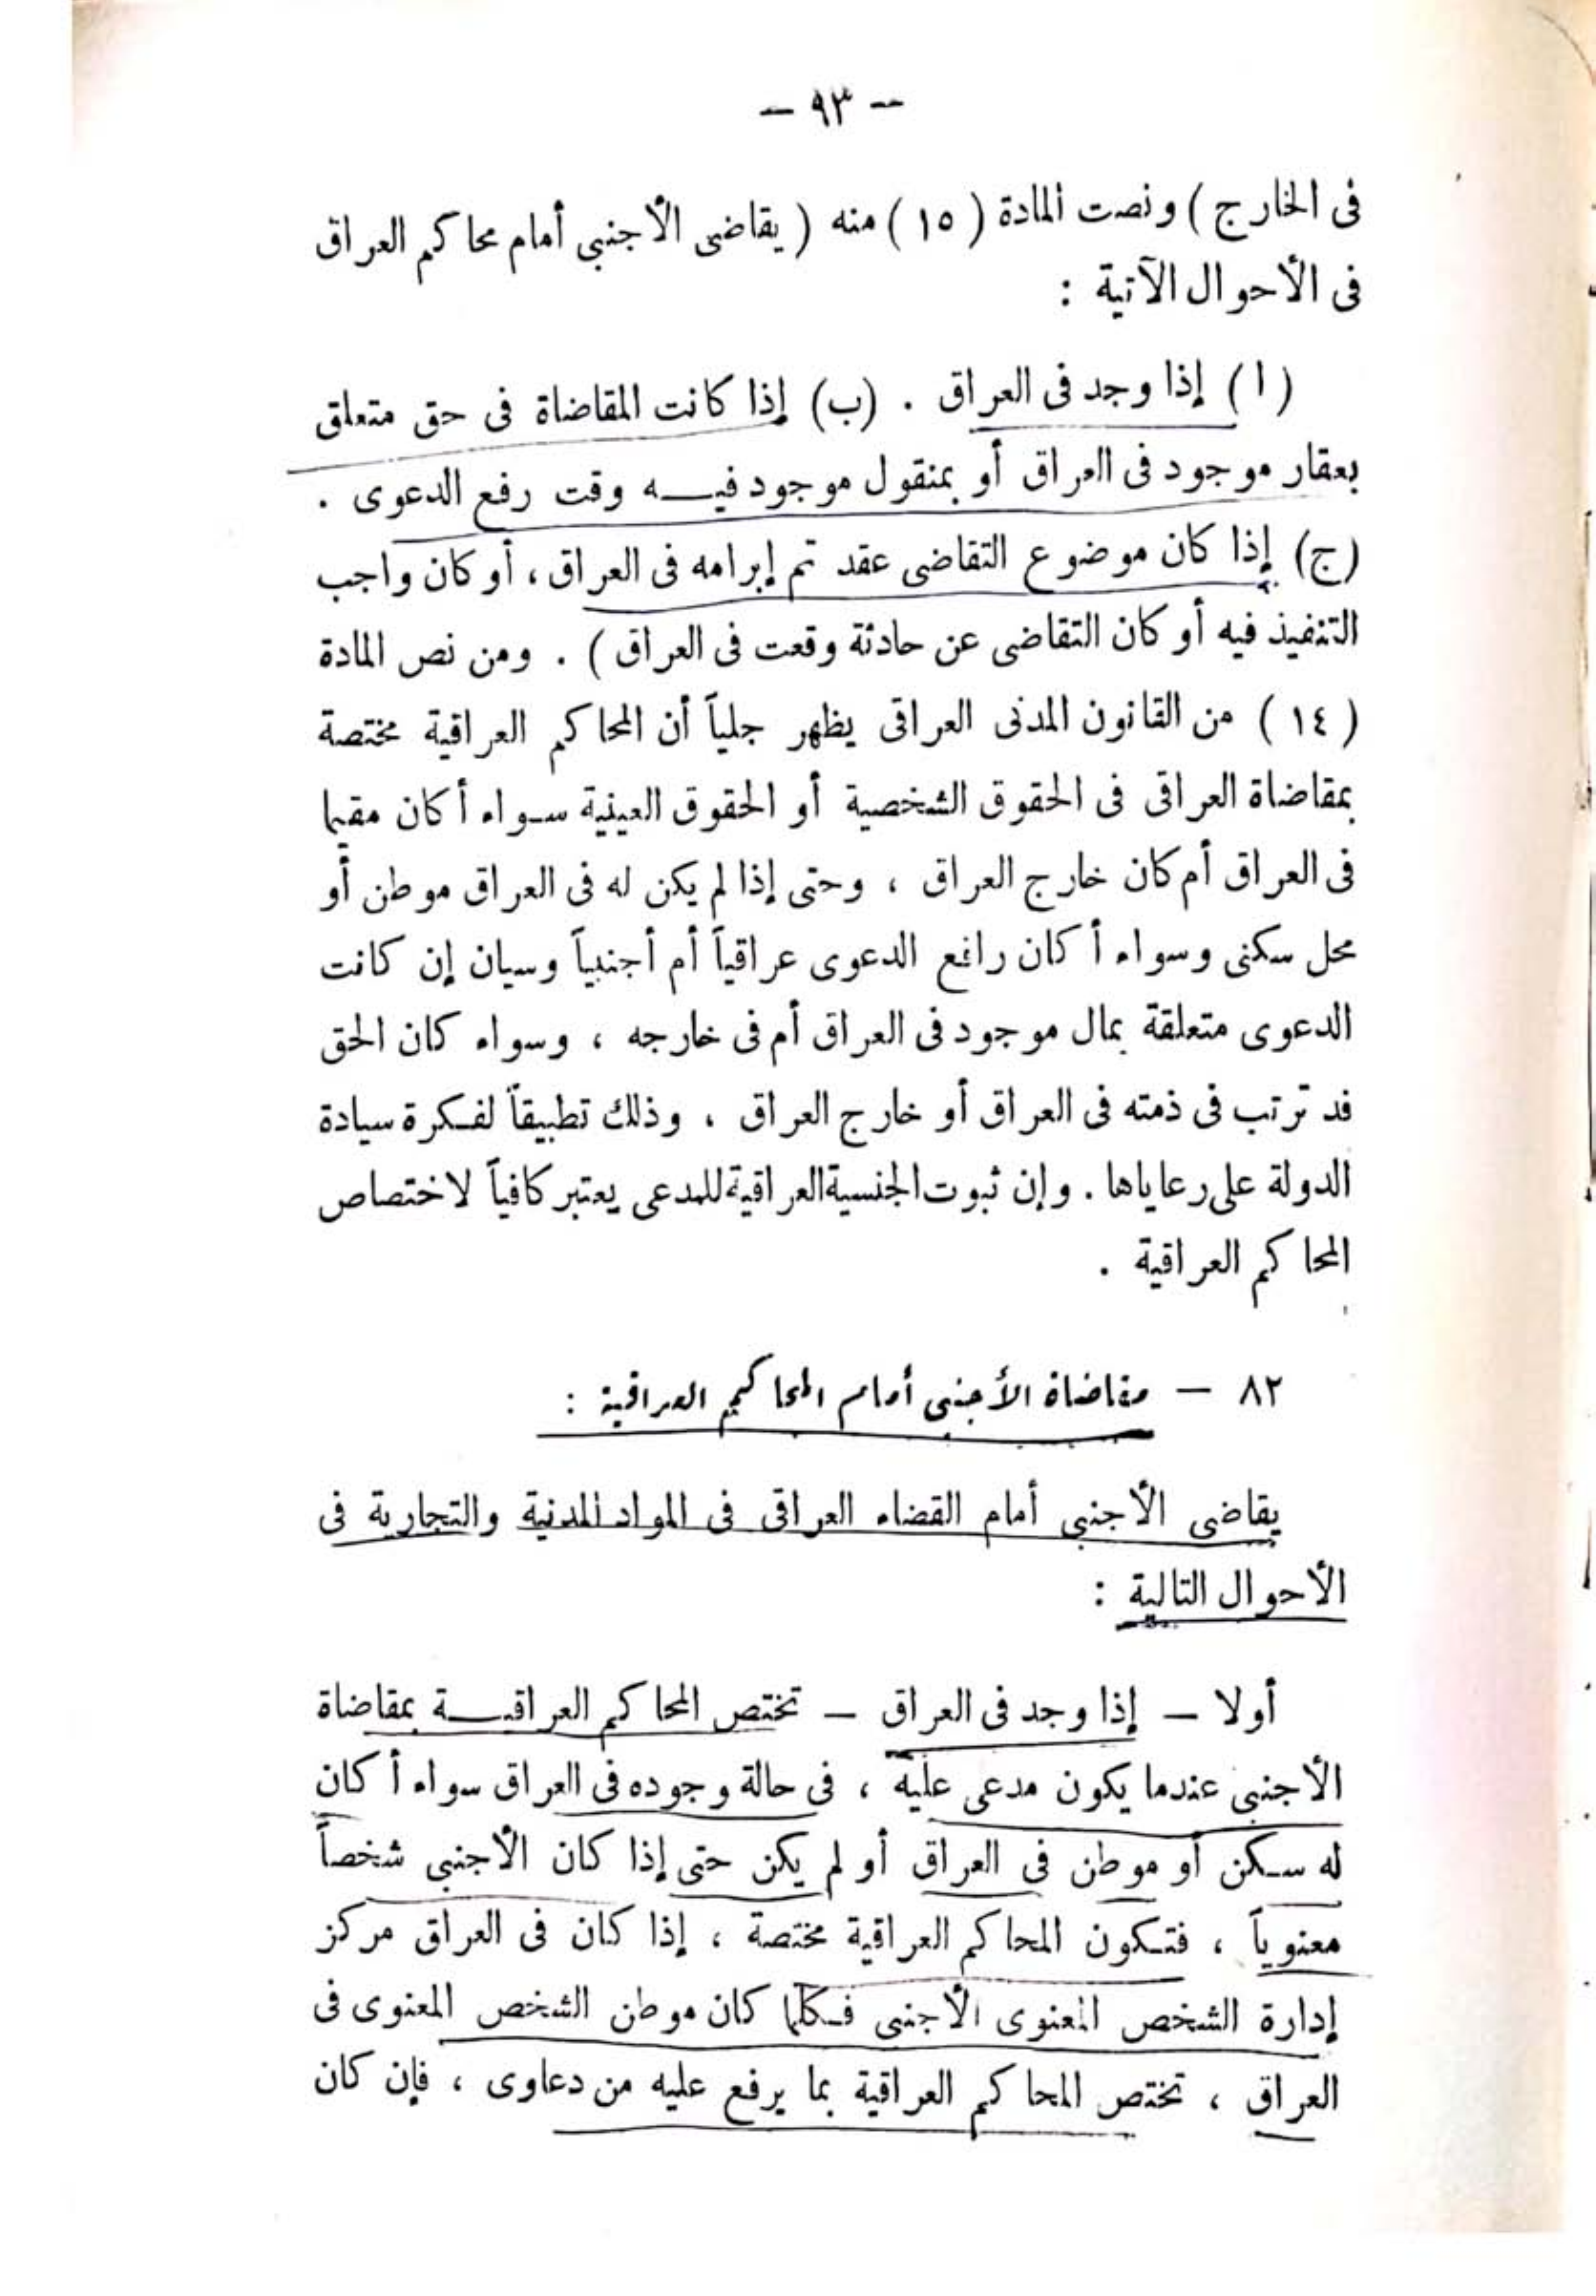 — ٩٣ —
فى الخارج ) ونصت المادة ( ١٥ ) منه ( يقاضى الأجنبى أمام محاكم العراق
فى الأحوال الآتية :
( ا ) إذا وجد فى العراق . (ب) إذا كانت المقاضاة فى حق متعلق
بعقار موجود فى العراق أو بمنقول موجود فيـــه وقت رفع الدعوى .
(ج) إذا كان موضوع التقاضى عقد تم إبرامه فى العراق ، أو كان واجب
التنفيذ فيه أو كان التقاضى عن حادثة وقعت فى العراق ) . ومن نص المادة
( ١٤ ) من القانون المدنى العراقى يظهر جلياً أن المحاكم العراقية مختصة
بمقاضاة العراقى فى الحقوق الشخصية أو الحقوق العينية سـواء أكان مقيما
فى العراق أم كان خارج العراق ، وحتى إذا لم يكن له فى العراق موطن أو
محل سكنى وسواء أكان رافع الدعوى عراقياً أم أجنبياً وسيان إن كانت
الدعوى متعلقة بمال موجود فى العراق أم فى خارجه ، وسواء كان الحق
قد ترتب فى ذمته فى العراق أو خارج العراق ، وذلك تطبيقاً لفـكرة سيادة
الدولة على رعاياها . وإن ثبوت الجنسية العراقية للمدعى يعتبر كافياً لاختصاص
المحاكم العراقية .
٨٢ — مقاضاة الأجنبى أمام المحاكم العراقية :
يقاضى الأجنبى أمام القضاء العراقى فى المواد المدنية والتجارية فى
الأحوال التالية :
أولا — إذا وجد فى العراق — تختص المحاكم العراقيـــة بمقاضاة
الأجنبى عندما يكون مدعى عليه ، فى حالة وجوده فى العراق سواء أكان
له سـكن أو موطن فى العراق أو لم يكن حتى إذا كان الأجنبى شخصاً
معنوياً ، فتـكون المحاكم العراقية مختصة ، إذا كان فى العراق مركز
إدارة الشخص المعنوى الأجنبى فـكلما كان موطن الشخص المعنوى فى
العراق ، تختص المحاكم العراقية بما يرفع عليه من دعاوى ، فإن كان